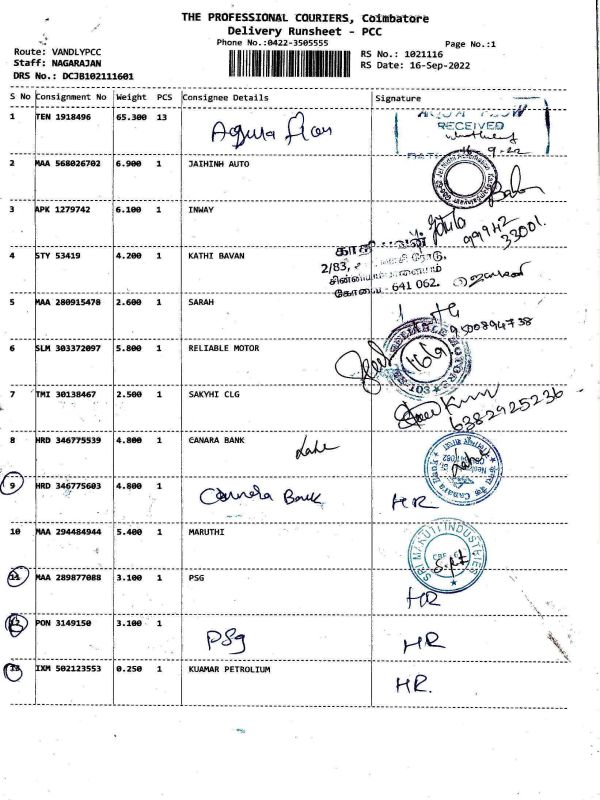 THE PROFESSIONAL COURIERS, Coimbatore
Delivery Runsheet - PCC
Phone No.:0422-3505555
Page No.:1
Route: VANDLYPCC
Staff: NAGARAJAN
DRS No.: DCJB102111601
RS No.: 1021116
RS Date: 16-Sep-2022
S No Consignment No Weight PCS Consignee Details Signature
1 TEN 1918496 65.300 13
RECEIVED
2 MAA 568026702 6.900 1 JAIHINH AUTO
3 APK 1279742 6.100 1 INWAY
99942
33001
4 STY 53419 4.200 1 KATHI BAVAN
2/83,
641 062.
5 MAA 280915478 2.600 1 SARAH
9500894738
6 SLM 303372097 5.800 1 RELIABLE MOTOR
RELIABLE MOTORS
7 TMI 30138467 2.500 1 SAKYHI CLG
6382925236
8 HRD 346775539 4.800 1 CANARA BANK
9 HRD 346775603 4.800 1 Canara Bank HR
10 MAA 294484944 5.400 1 MARUTHI
INDUSTRIES
11 MAA 289877088 3.100 1 PSG HR
12 PON 3149150 3.100 1 PSg HR
13 IXM 502123553 0.250 1 KUAMAR PETROLIUM HR.